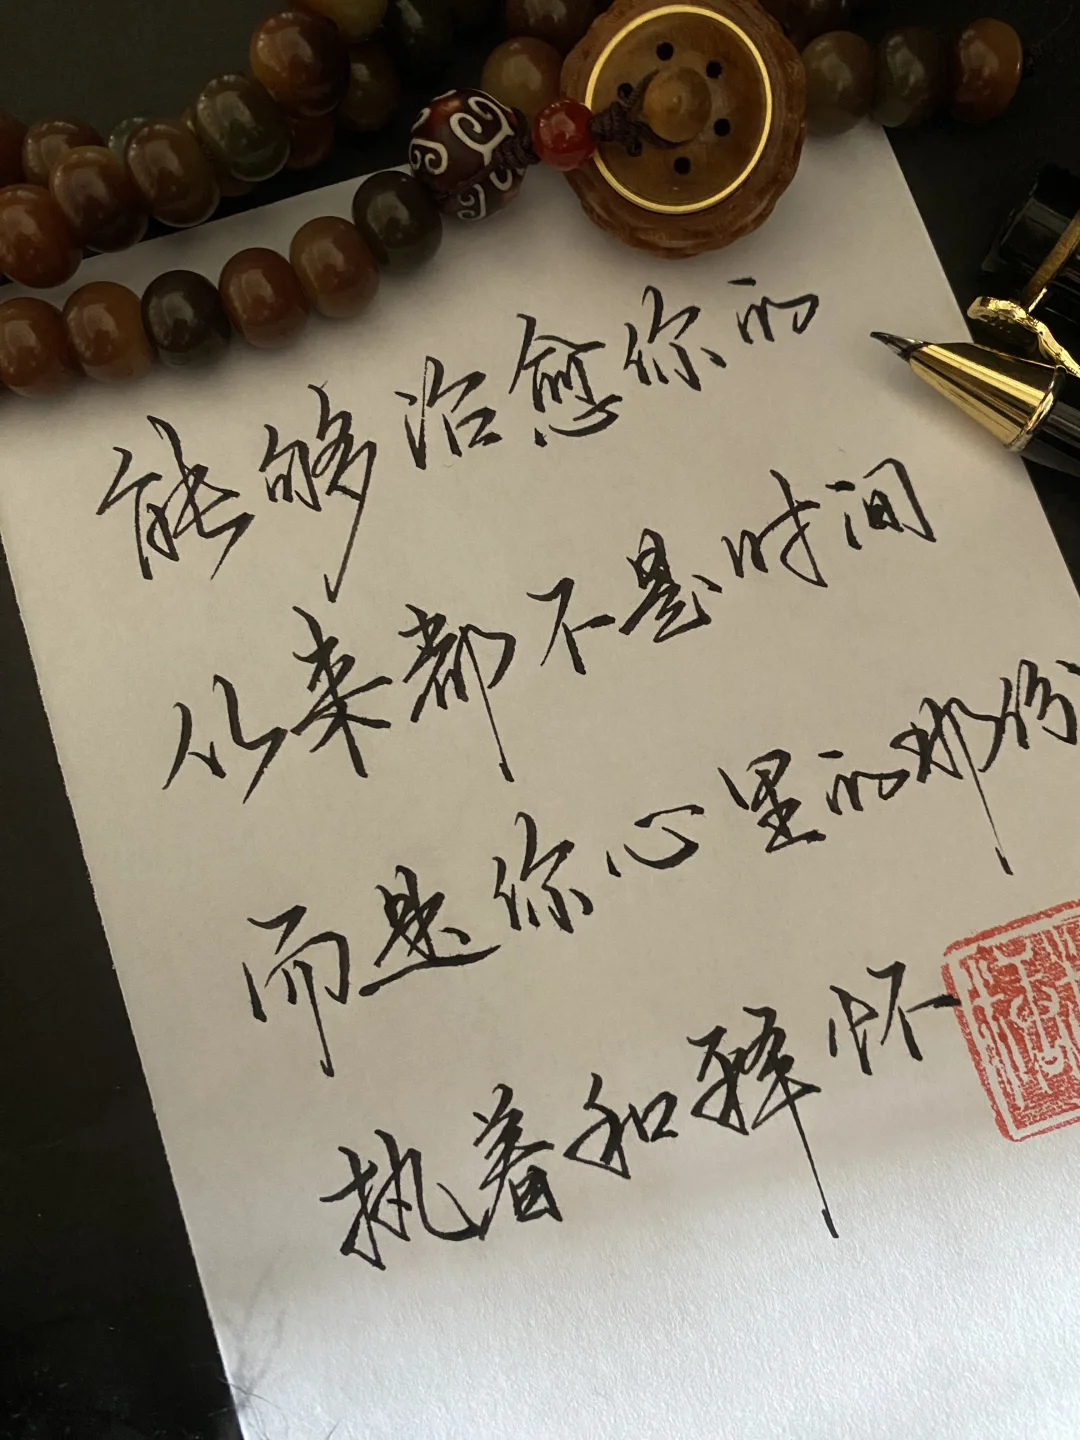 能够治愈你的
从来都不是时间
而是你心里的那份
执着和释怀